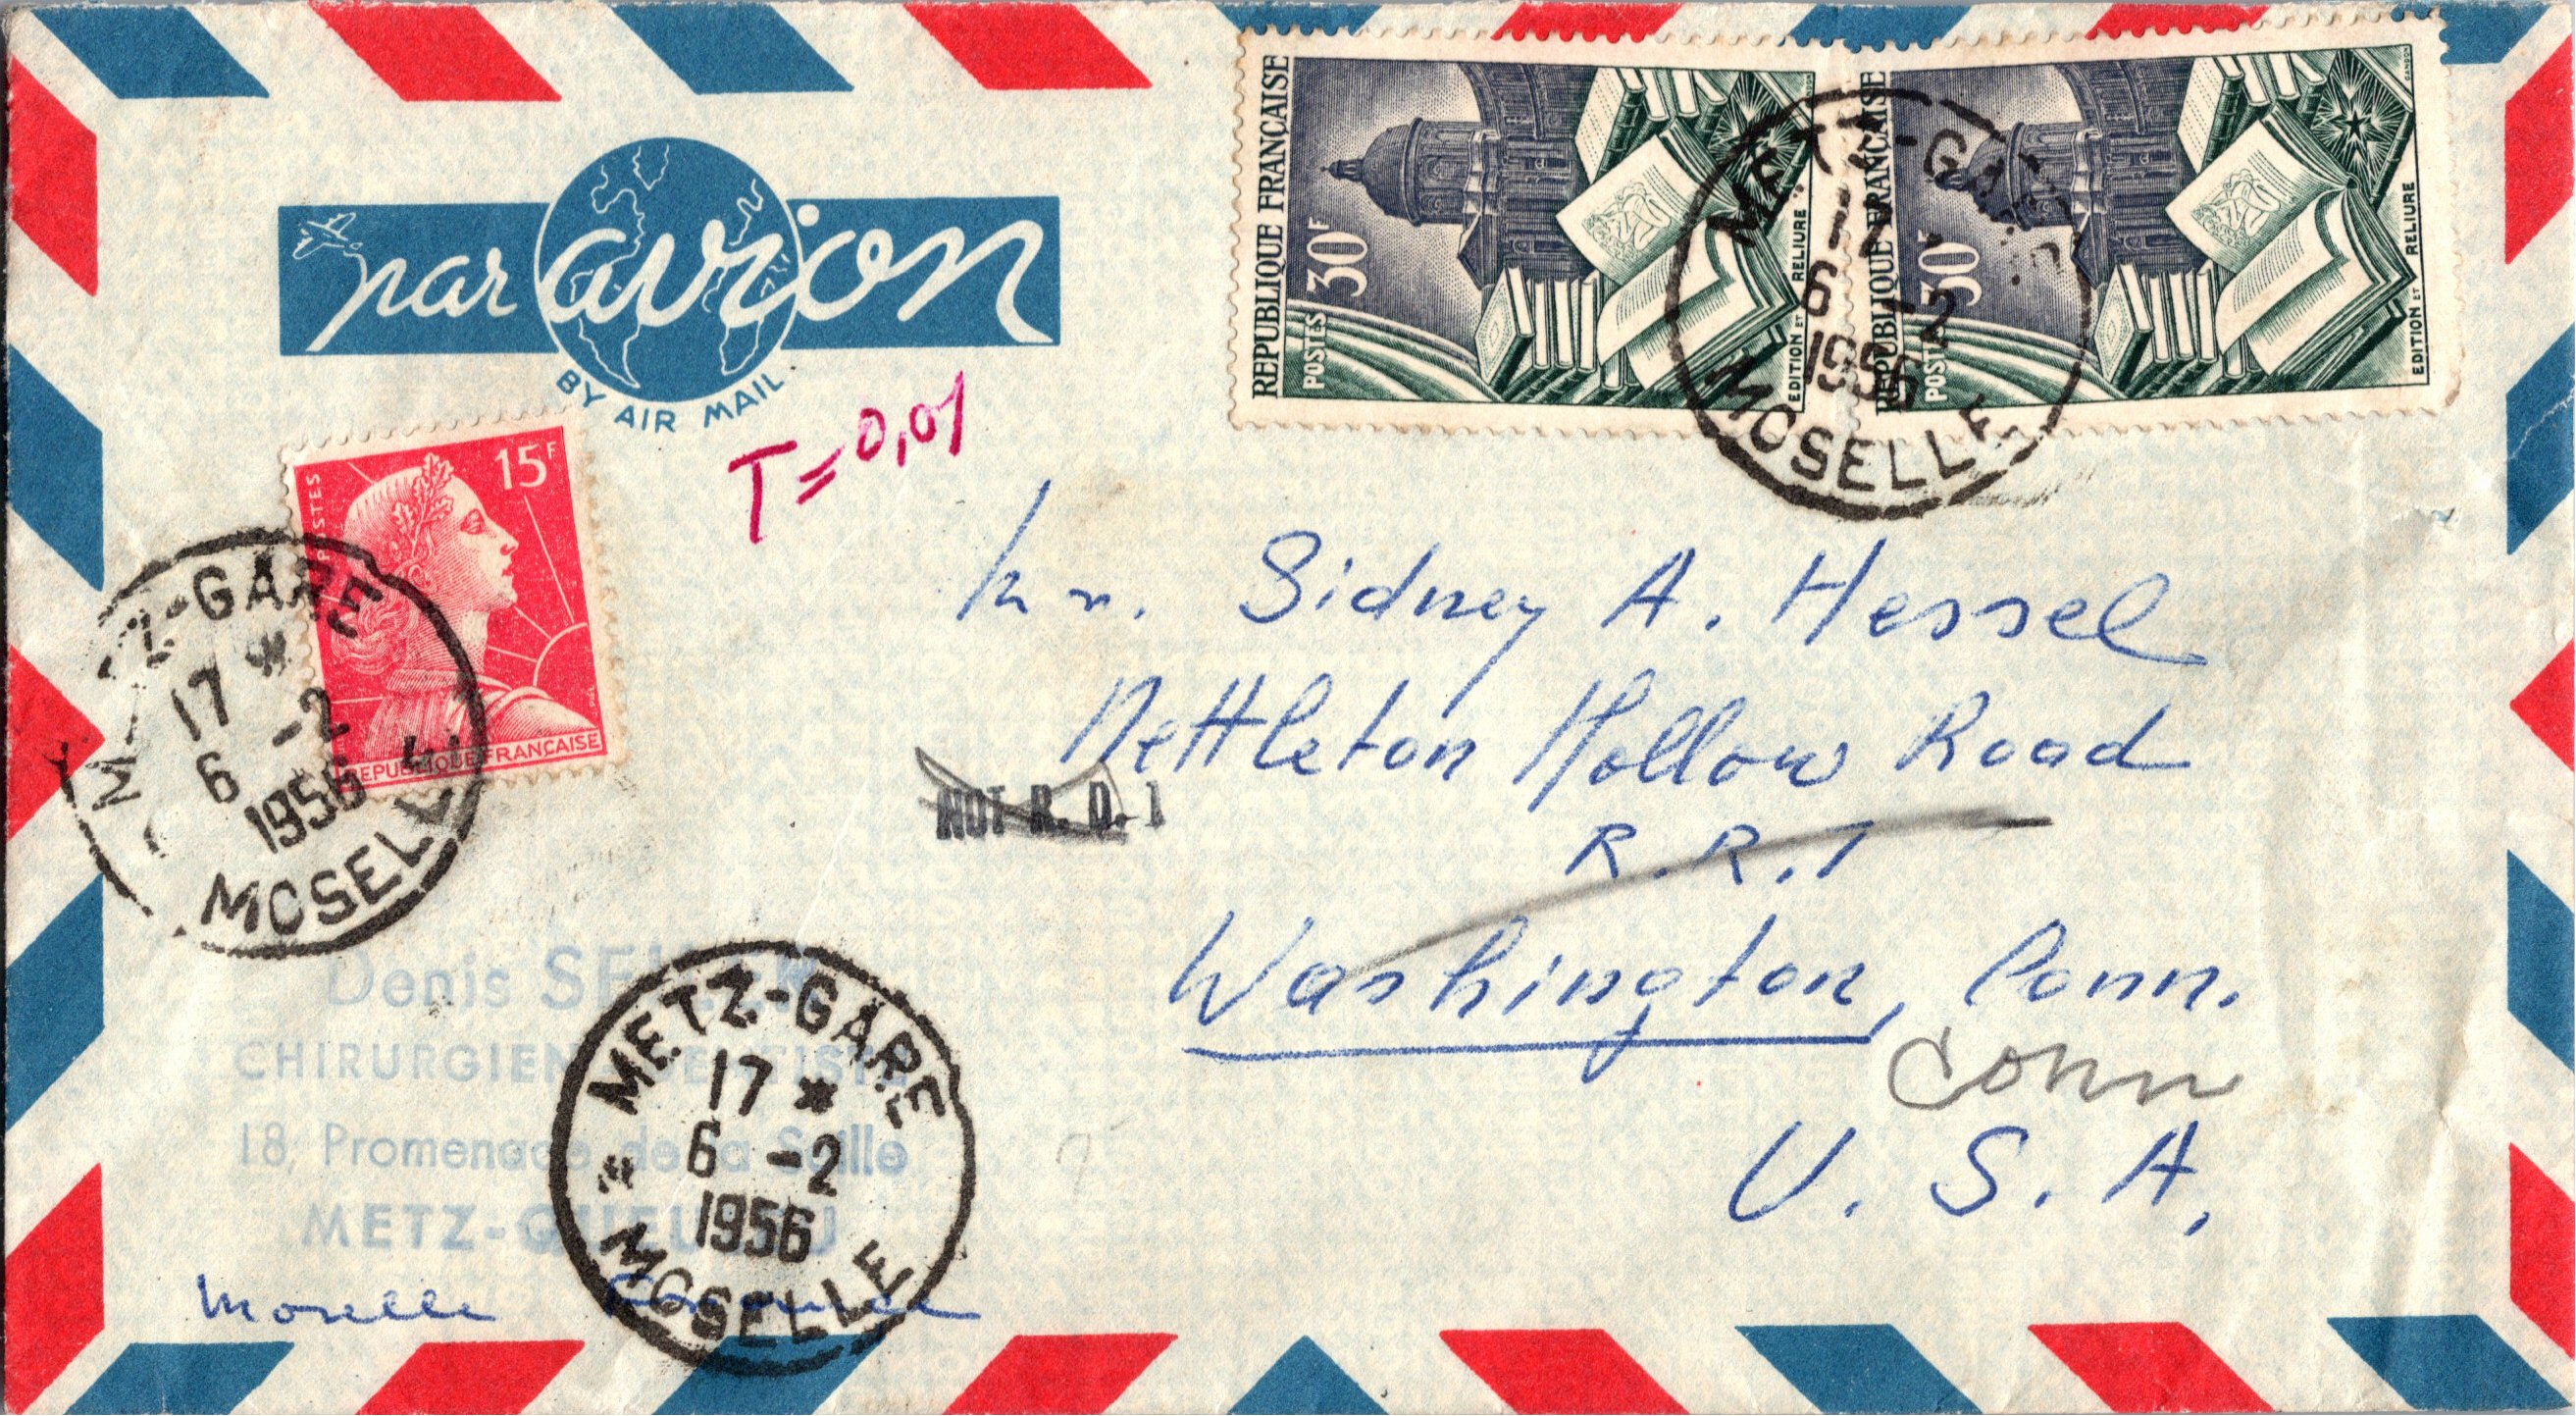 REPUBLIQUE FRANÇAISE
POSTES
30F
EDITION ET RELIURE
REPUBLIQUE FRANÇAISE
POSTES
30F
EDITION ET RELIURE
METZ-GARE
17 *
6 -2
1956
MOSELLE
par avion
BY AIR MAIL
T=0,01
POSTES
15F
REPUBLIQUE FRANÇAISE
METZ-GARE
17 *
6 -2
1956
MOSELLE
Mr. Sidney A. Hessel
Nettleton Hollow Road
NOT R. D. 1
R.R.1
Washington, Conn.
Conn
U. S. A.
Denis
CHIRURGIEN DENTISTE
18, Promenade de la Seille
METZ-QUEULEU
Moselle
METZ-GARE
17 *
* 6 -2
1956
MOSELLE